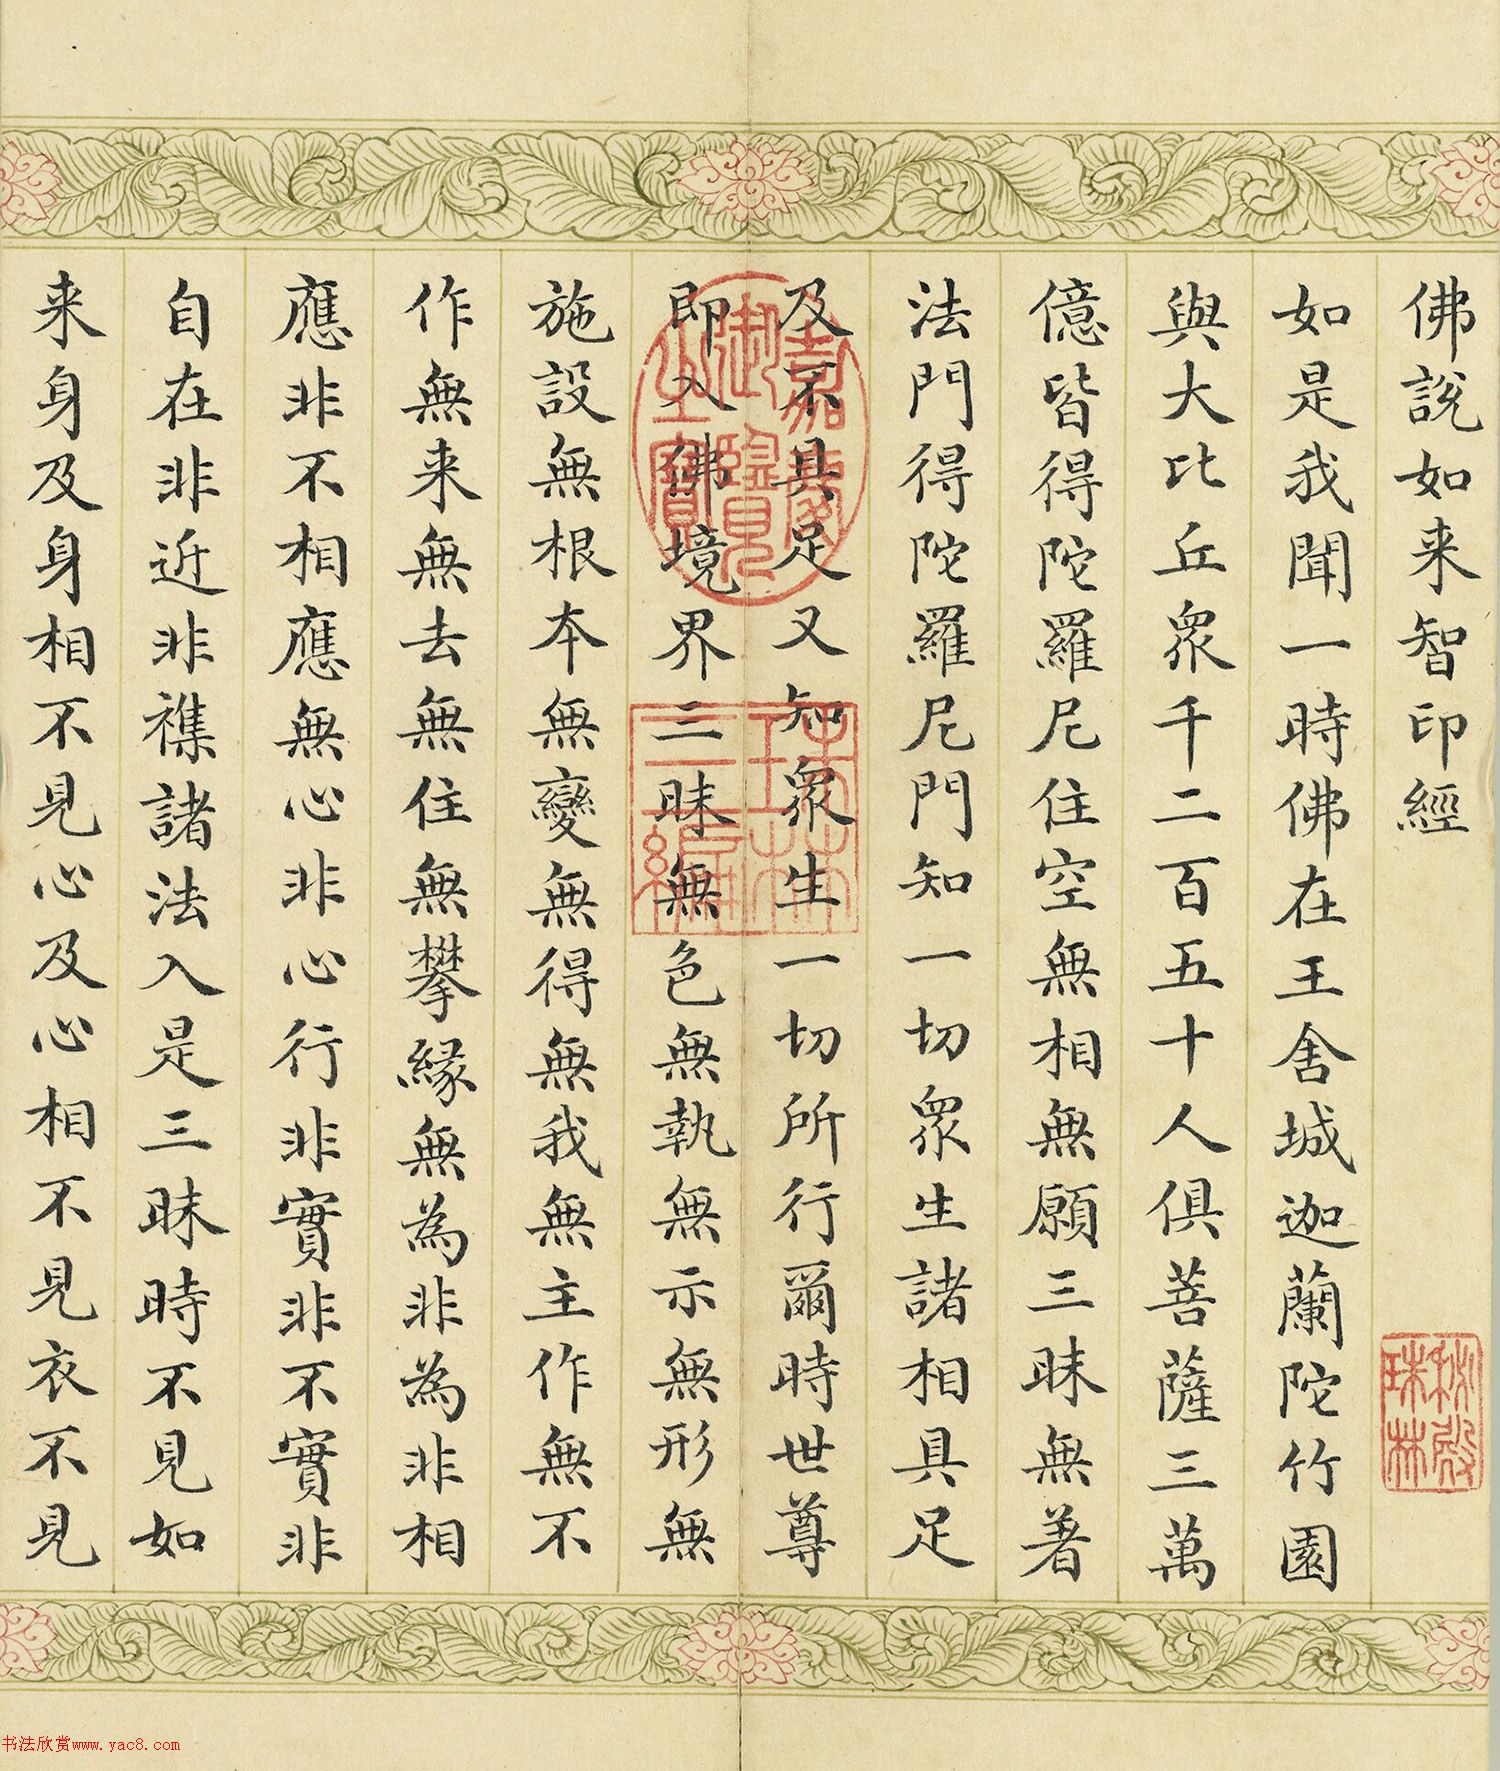 佛說如来智印經
如是我聞一時佛在王舍城迦蘭陀竹園
與大比丘眾千二百五十人俱菩薩三萬
億皆得陀羅尼住空無相無願三昧無著
法門得陀羅尼門知一切眾生諸相具足
及不具足又知眾生一切所行爾時世尊
即入佛境界三昧無色無執無示無形無
施設無根本無變無得無我無主作無不
作無来無去無住無攀緣無為非為非相
應非不相應無心非心行非實非不實非
自在非近非襍諸法入是三昧時不見如
来身及身相不見心及心相不見衣不見
秘殿珠林
嘉慶御覽之寶
珠林三編
书法欣赏www.yac8.com